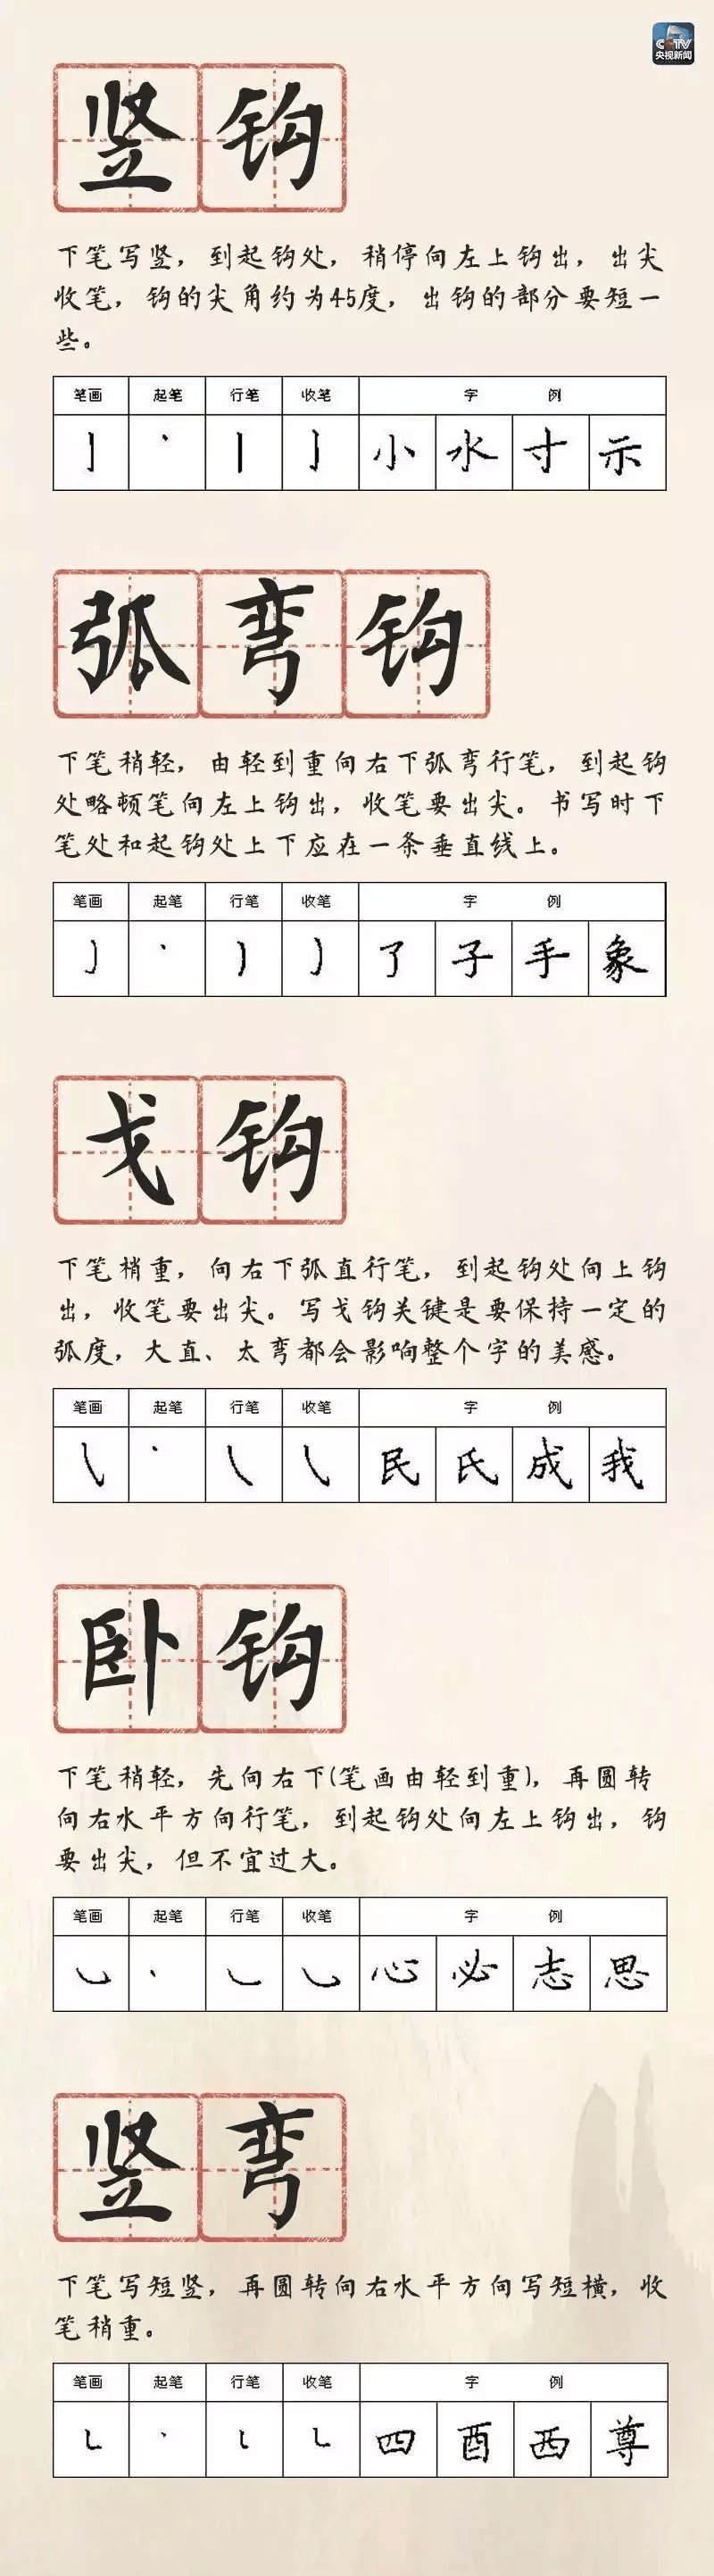 CCTV
央视新闻
竖钩
下笔写竖，到起钩处，稍停向左上钩出，出尖
收笔，钩的尖角约为45度，出钩的部分要短一
些。
笔画 起笔 行笔 收笔 字 例
亅 丶 丨 亅 小 水 寸 示
弧弯钩
下笔稍轻，由轻到重向右下弧弯行笔，到起钩
处略顿笔向左上钩出，收笔要出尖。书写时下
笔处和起钩处上下应在一条垂直线上。
笔画 起笔 行笔 收笔 字 例
了 子 手 象
戈钩
下笔稍重，向右下弧直行笔，到起钩处向上钩
出，收笔要出尖。写戈钩关键是要保持一定的
弧度，大直、太弯都会影响整个字的美感。
笔画 起笔 行笔 收笔 字 例
民 氏 成 我
卧钩
下笔稍轻，先向右下(笔画由轻到重)，再圆转
向右水平方向行笔，到起钩处向左上钩出，钩
要出尖，但不宜过大。
笔画 起笔 行笔 收笔 字 例
心 必 志 思
竖弯
下笔写短竖，再圆转向右水平方向写短横，收
笔稍重。
笔画 起笔 行笔 收笔 字 例
四 酉 西 尊